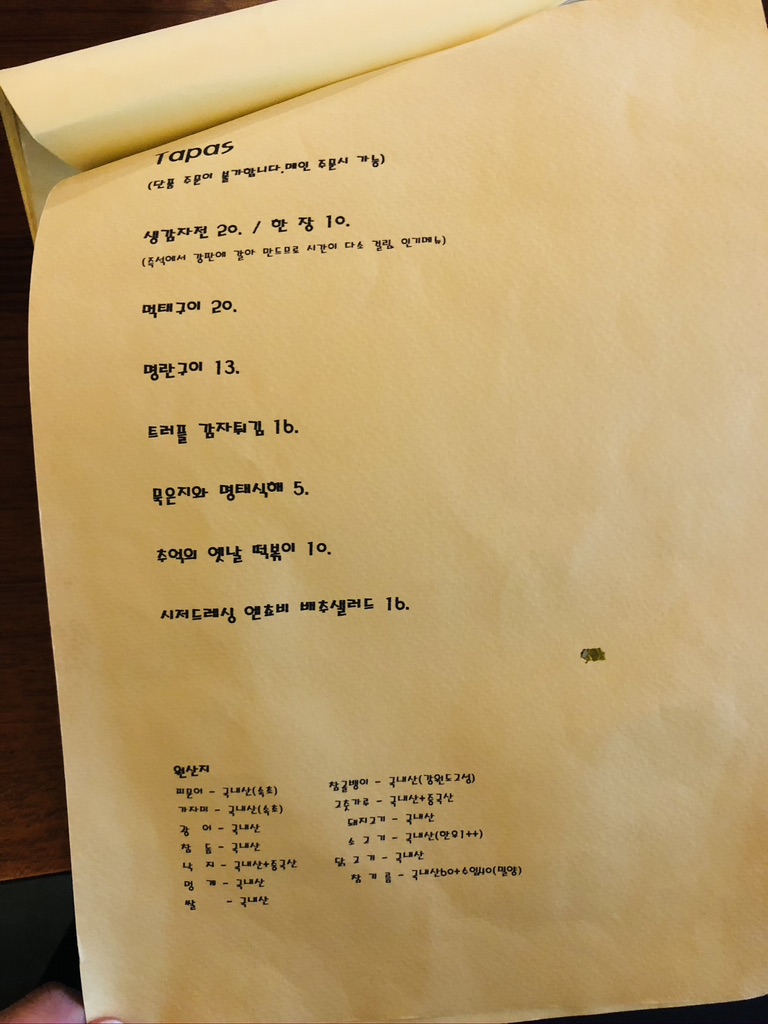 Tapas
(단품 주문이 불가합니다.메인 주문시 가능)
생감자전 20. / 한 장 10.
(즉석에서 강판에 갈아 만드므로 시간이 다소 걸림. 인기메뉴)
먹태구이 20.
명란구이 13.
트러플 감자튀김 16.
묵은지와 명태식해 5.
추억의 옛날 떡볶이 10.
시저드레싱 엔쵸비 배추샐러드 16.
원산지
피문어 - 국내산(속초)
가자미 - 국내산(속초)
광 어 - 국내산
참 돔 - 국내산
낙 지 - 국내산+중국산
멍 게 - 국내산
쌀 - 국내산
참골뱅이 - 국내산(강원도고성)
고춧가루 - 국내산+중국산
돼지고기 - 국내산
소 고 기 - 국내산(한우1++)
닭 고 기 - 국내산
참 기 름 - 국내산60+수입40(밀양)